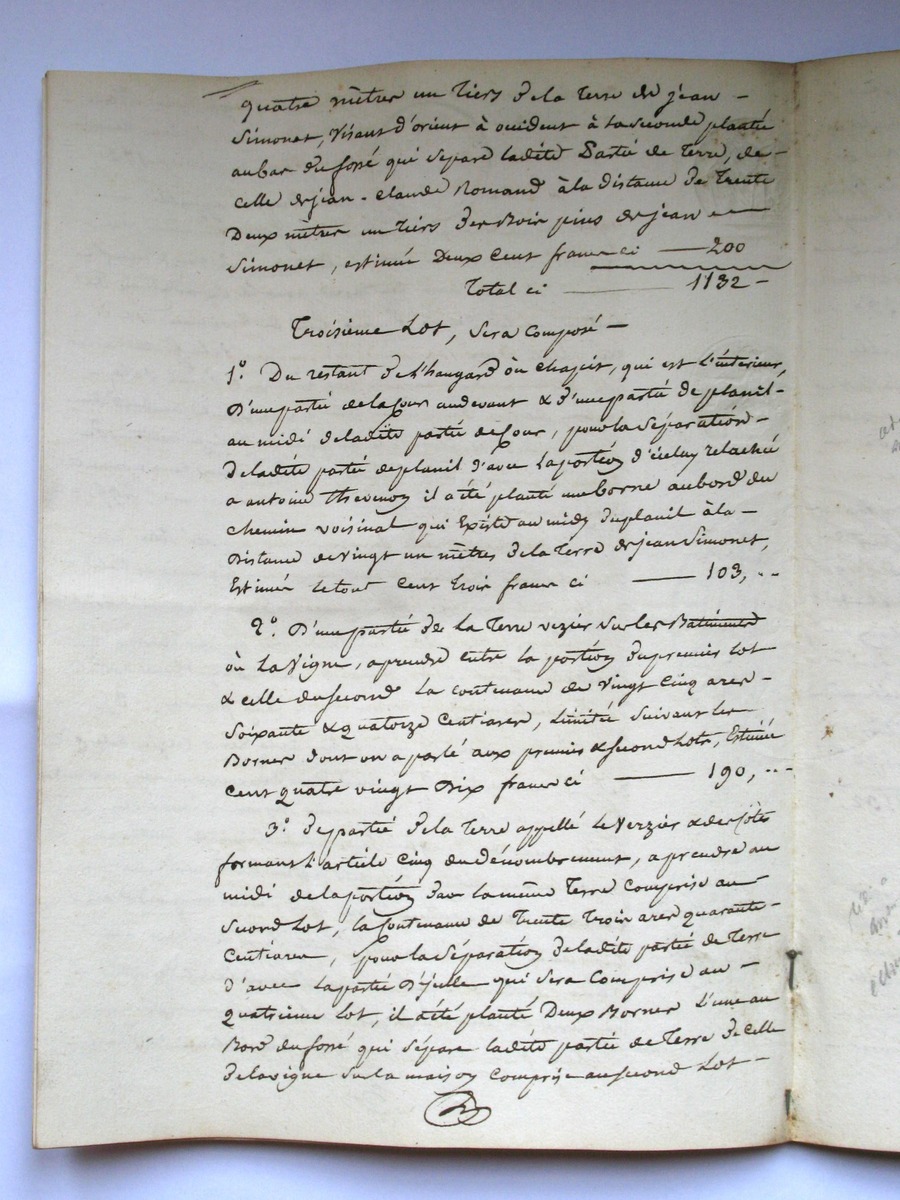 quatre mètres un tiers de la terre de jean -
Simonet, visant d'orient à occident à la seconde plantée
au bas du fossé qui separe ladite Partie de terre, de -
celle de jean-claude Romand à la distance de trente
Deux mètres un tiers des Bois pins de jean
Simonet, estimée Deux Cent francs ci 200
Total ci 1132 -
Troisième Lot, sera composé -
1.° Du restant de l'hangard ou chapit, qui est l'interieur,
D'une partie de la cour au devant & d'une partie de planil -
au midi de ladite partie de Cour, pour la séparation -
de ladite partie de planil d'avec la portion d'iceluy relachée
a antoine thevenon il a été planté une borne au bord du
chemin voisinal qui Existe au midy du planil à la -
Distance de vingt un mètres de la terre de jean Simonet,
Estimée le tout Cent trois francs ci 103, "
2.° D'une partie de la terre vezier sur les Batiments
ou la vigne, a prendre entre la portion du premier lot
& celle du second la contenance de vingt cinq ares -
soixante & quatorze Centiares, limitée suivant les
Bornes dont on a parlé aux premier & second lots, Estimée
Cent quatre vingt Dix francs ci 190, "
3.° de partie de la terre appellé le verzier & des Côtes
formant l'article Cinq du Dénombrement, a prendre au
midi de la portion de la même terre comprise au
second lot, la contenance de trente trois ares quarante -
Centiares, pour la séparation de ladite partie de terre
d'avec la partie D'icelle qui sera comprise au -
quatrieme lot, il a été planté Deux Bornes l'une au
Bord du fossé qui sépare ladite partie de terre de celle
de la vigne sur la maison comprise au second lot -